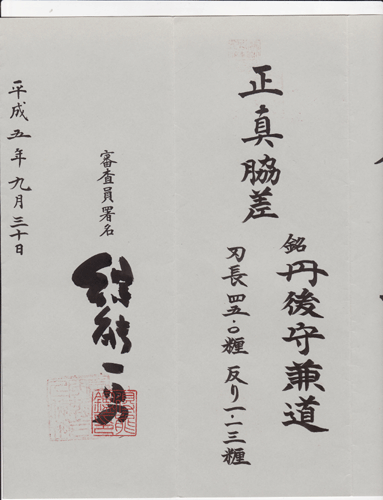 正真脇差
銘 丹後守兼道
刃長四五・〇糎 反り
審査員署名
平成五年九月三十日